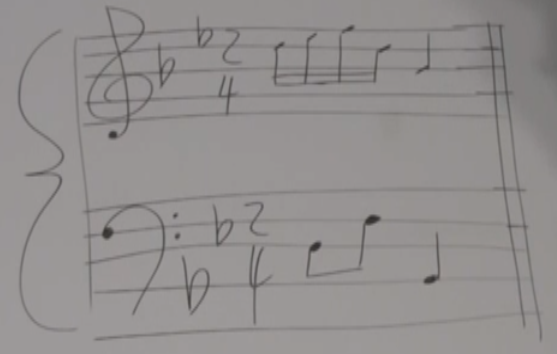 2
4
2
4